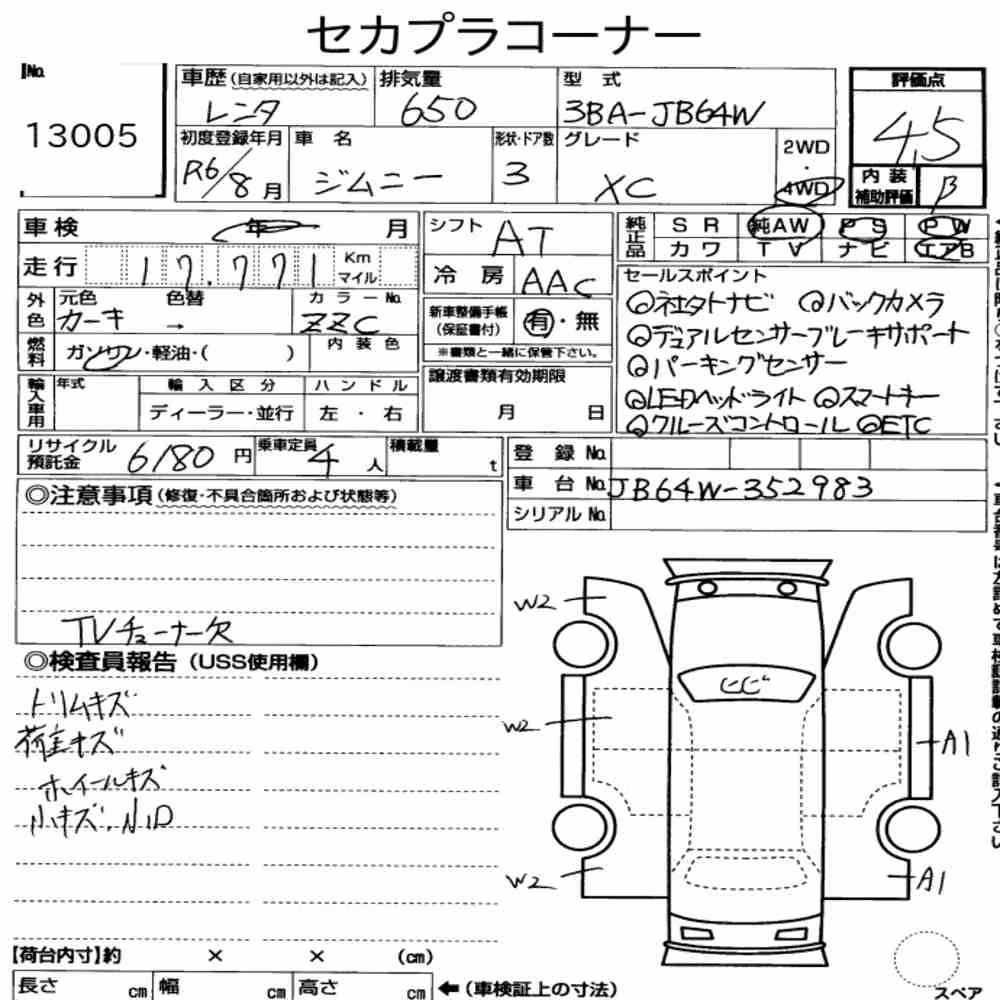 セカプラコーナー
No.
13005
車歴 (自家用以外は記入) 排気量 型式 評価点
レンタ 650 3BA-JB64W 4.5
初度登録年月 車名 形状・ドア数 グレード 2WD・4WD 内装補助評価
R6/8月 ジムニー 3 XC B
車検 年 月
シフト AT
純正品 SR 純AW PS PW
カワ TV ナビ エアB
走行 17.771 Km マイル
冷房 AAC
セールスポイント
◎社外ナビ ◎バックカメラ
◎デュアルセンサーブレーキサポート
◎パーキングセンサー
◎LEDヘッドライト ◎スマートキー
◎クルーズコントロール ◎ETC
外色 元色 色替 カラーNo.
カーキ → ZZC
新車整備手帳(保証書付) 有・無
※書類と一緒に保管下さい。
燃料 ガソリン・軽油・( ) 内装色
譲渡書類有効期限
月 日
輸入車用 年式 輸入区分 ハンドル
ディーラー・並行 左・右
リサイクル預託金 6180円 乗車定員 4人 積載量 t
登録No.
車台No. JB64W-352983
シリアルNo.
◎注意事項(修復・不具合箇所および状態等)
TVチューナー欠
◎検査員報告(USS使用欄)
トリムキズ
荷室キズ
ホイールキズ
小キズ.
W2
W2
A1
W2
A1
【荷台内寸】約 × × (cm)
長さ cm 幅 cm 高さ cm ←(車検証上の寸法)
スペア